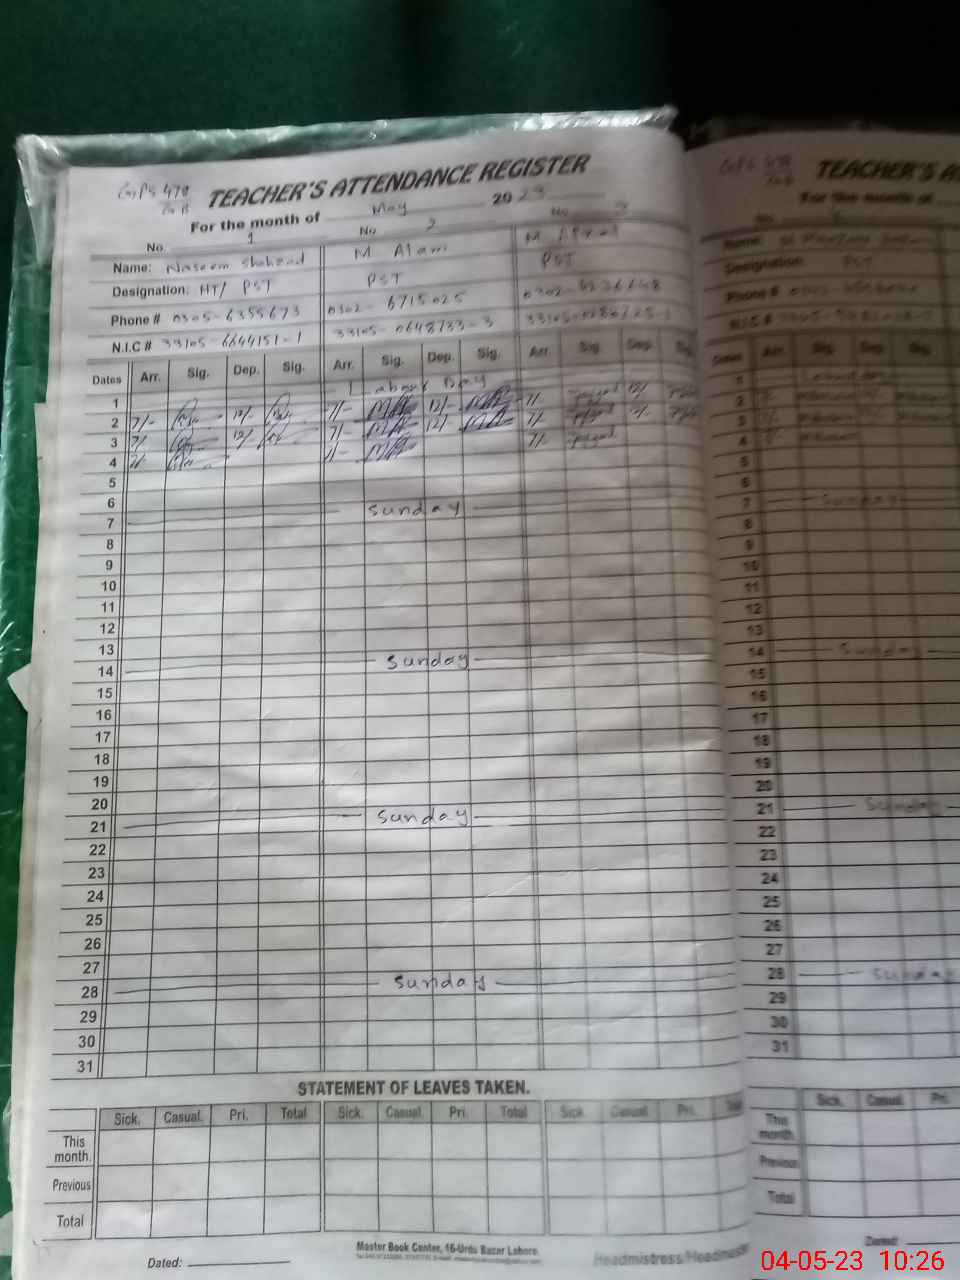 GPS 478
GB
TEACHER'S ATTENDANCE REGISTER
For the month of May 2023
No. 1 No. 2 No. 3
Name: Naseem Shahzad M Alam M Afzal
Designation: HT/ PST PST PST
Phone # 0305-6355673 0302-6715025
N.I.C # 33105-6644151-1 33105-0648733-3
Dates Arr. Sig. Dep. Sig. Arr. Sig. Dep. Sig. Arr. Sig. Dep. Sig.
1 labour Day
2 7/- 12/- 7/- 12/- 7/- 12/-
3 7/- 12/- 7/- 12/- 7/- 12/-
4 7/- 7/- 7/-
5
6
7 Sunday
8
9
10
11
12
13
14 Sunday
15
16
17
18
19
20
21 Sunday
22
23
24
25
26
27
28 Sunday
29
30
31
STATEMENT OF LEAVES TAKEN.
Sick. Casual. Pri. Total Sick. Casual. Pri. Total Sick. Casual. Pri. Total
This
month.
Previous
Total
Master Book Center, 16-Urdu Bazar Lahore.
Dated:
Headmistress/Headmaster
TEACHER'S A
For the month of
No.
Name:
Designation: PST
Phone #
N.I.C #
Dates Arr. Sig. Dep. Sig.
1
2
3
4
5
6
7 Sunday
8
9
10
11
12
13
14 Sunday
15
16
17
18
19
20
21 Sunday
22
23
24
25
26
27
28 Sunday
29
30
31
Sick. Casual. Pri.
This
month.
Previous
Total
Dated:
04-05-23 10:26